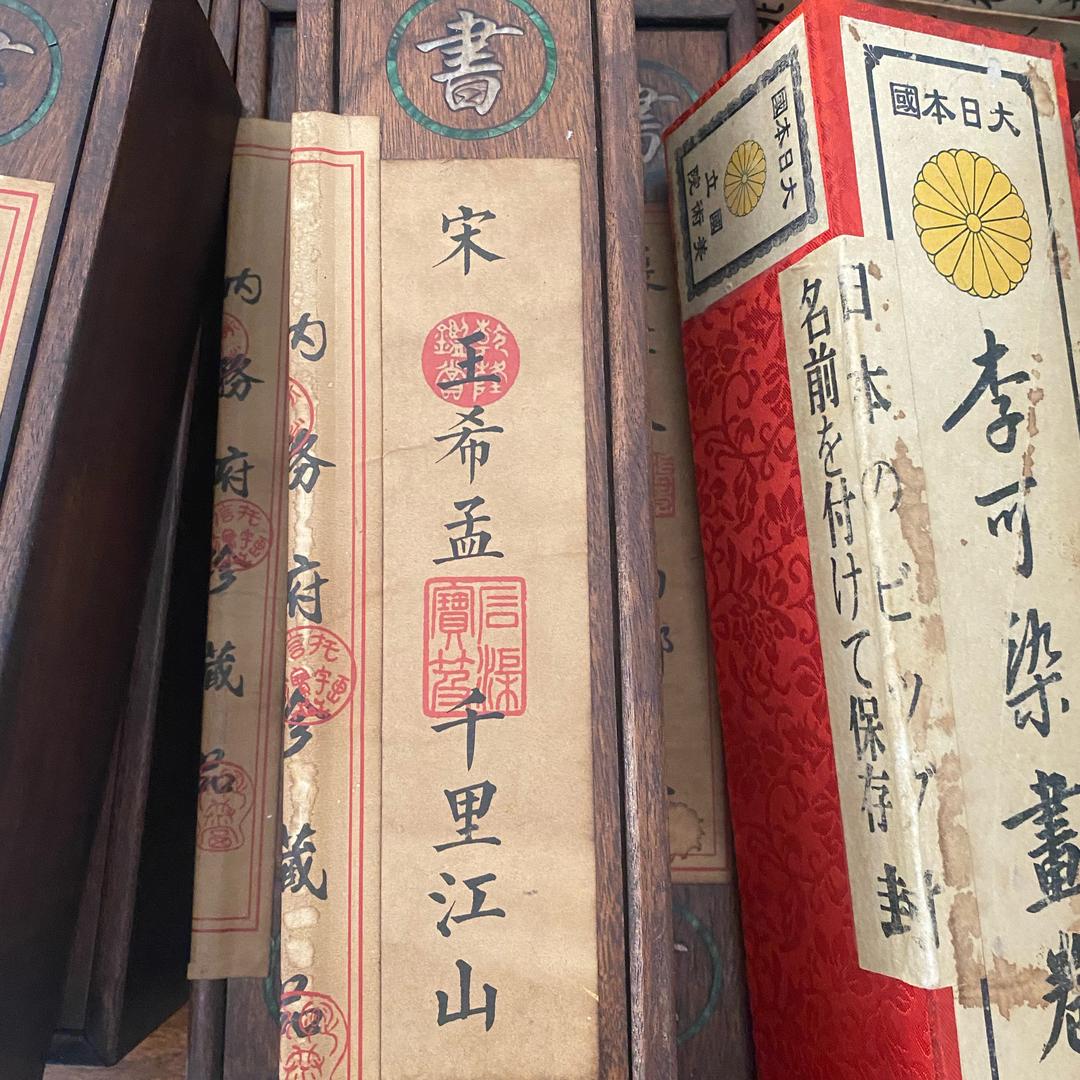 書
宋
王希孟
千里江山
乾隆
鑑賞
内务府珍藏品
内务府珍藏品
大日本國
大日本國
國立
美術院
李可染畫卷
日本のビッグ
名前を付けて保存
封